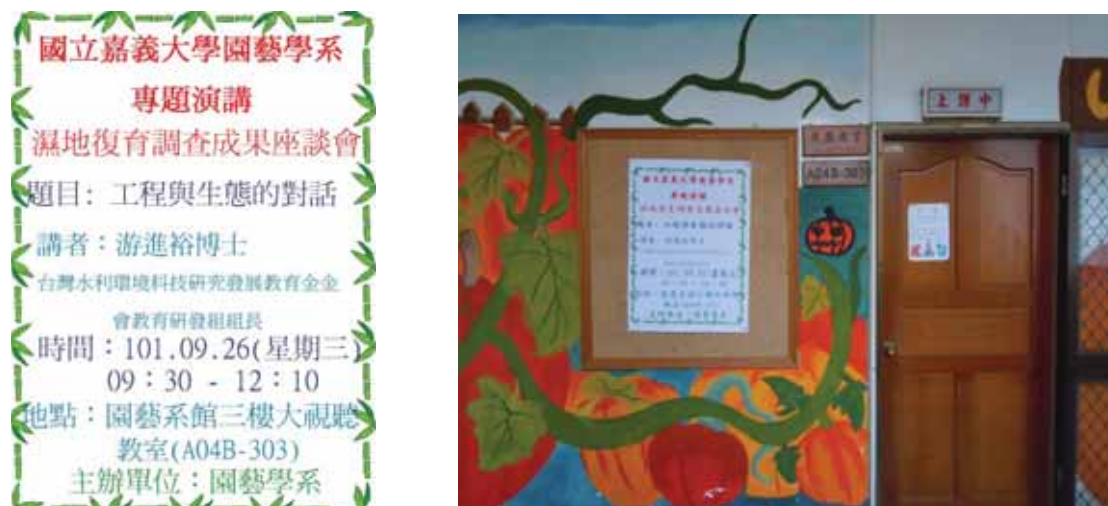 國立嘉義大學園藝學系
專題演講
濕地復育調查成果座談會
題目: 工程與生態的對話
講者：游進裕博士
台灣水利環境科技研究發展教育金金
會教育研發組組長
時間：101.09.26(星期三)
09：30 - 12：10
地點：園藝系館三樓大視聽
教室(A04B-303)
主辦單位：園藝學系
上課中
A04B-303
國立嘉義大學園藝學系
專題演講